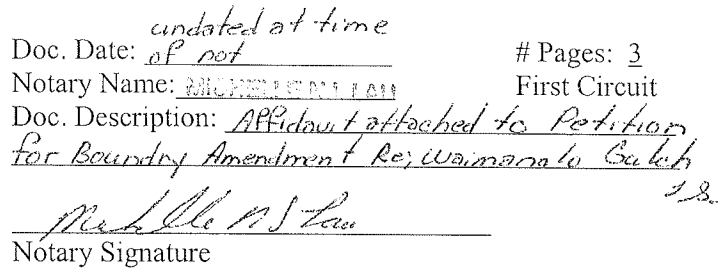 undated at time
Doc. Date: of not # Pages: 3
Notary Name: MICHELLE N.S. LAU First Circuit
Doc. Description: Affidavit attached to Petition
for Boundry Amendment Re; Waimanalo Gulch
Michelle N S Lau
Notary Signature